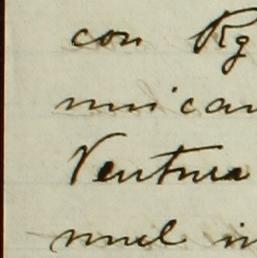 con Rg
municar
Ventura
nuel in